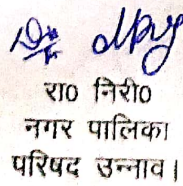 रा0 निरी0
नगर पालिका
परिषद उन्नाव।